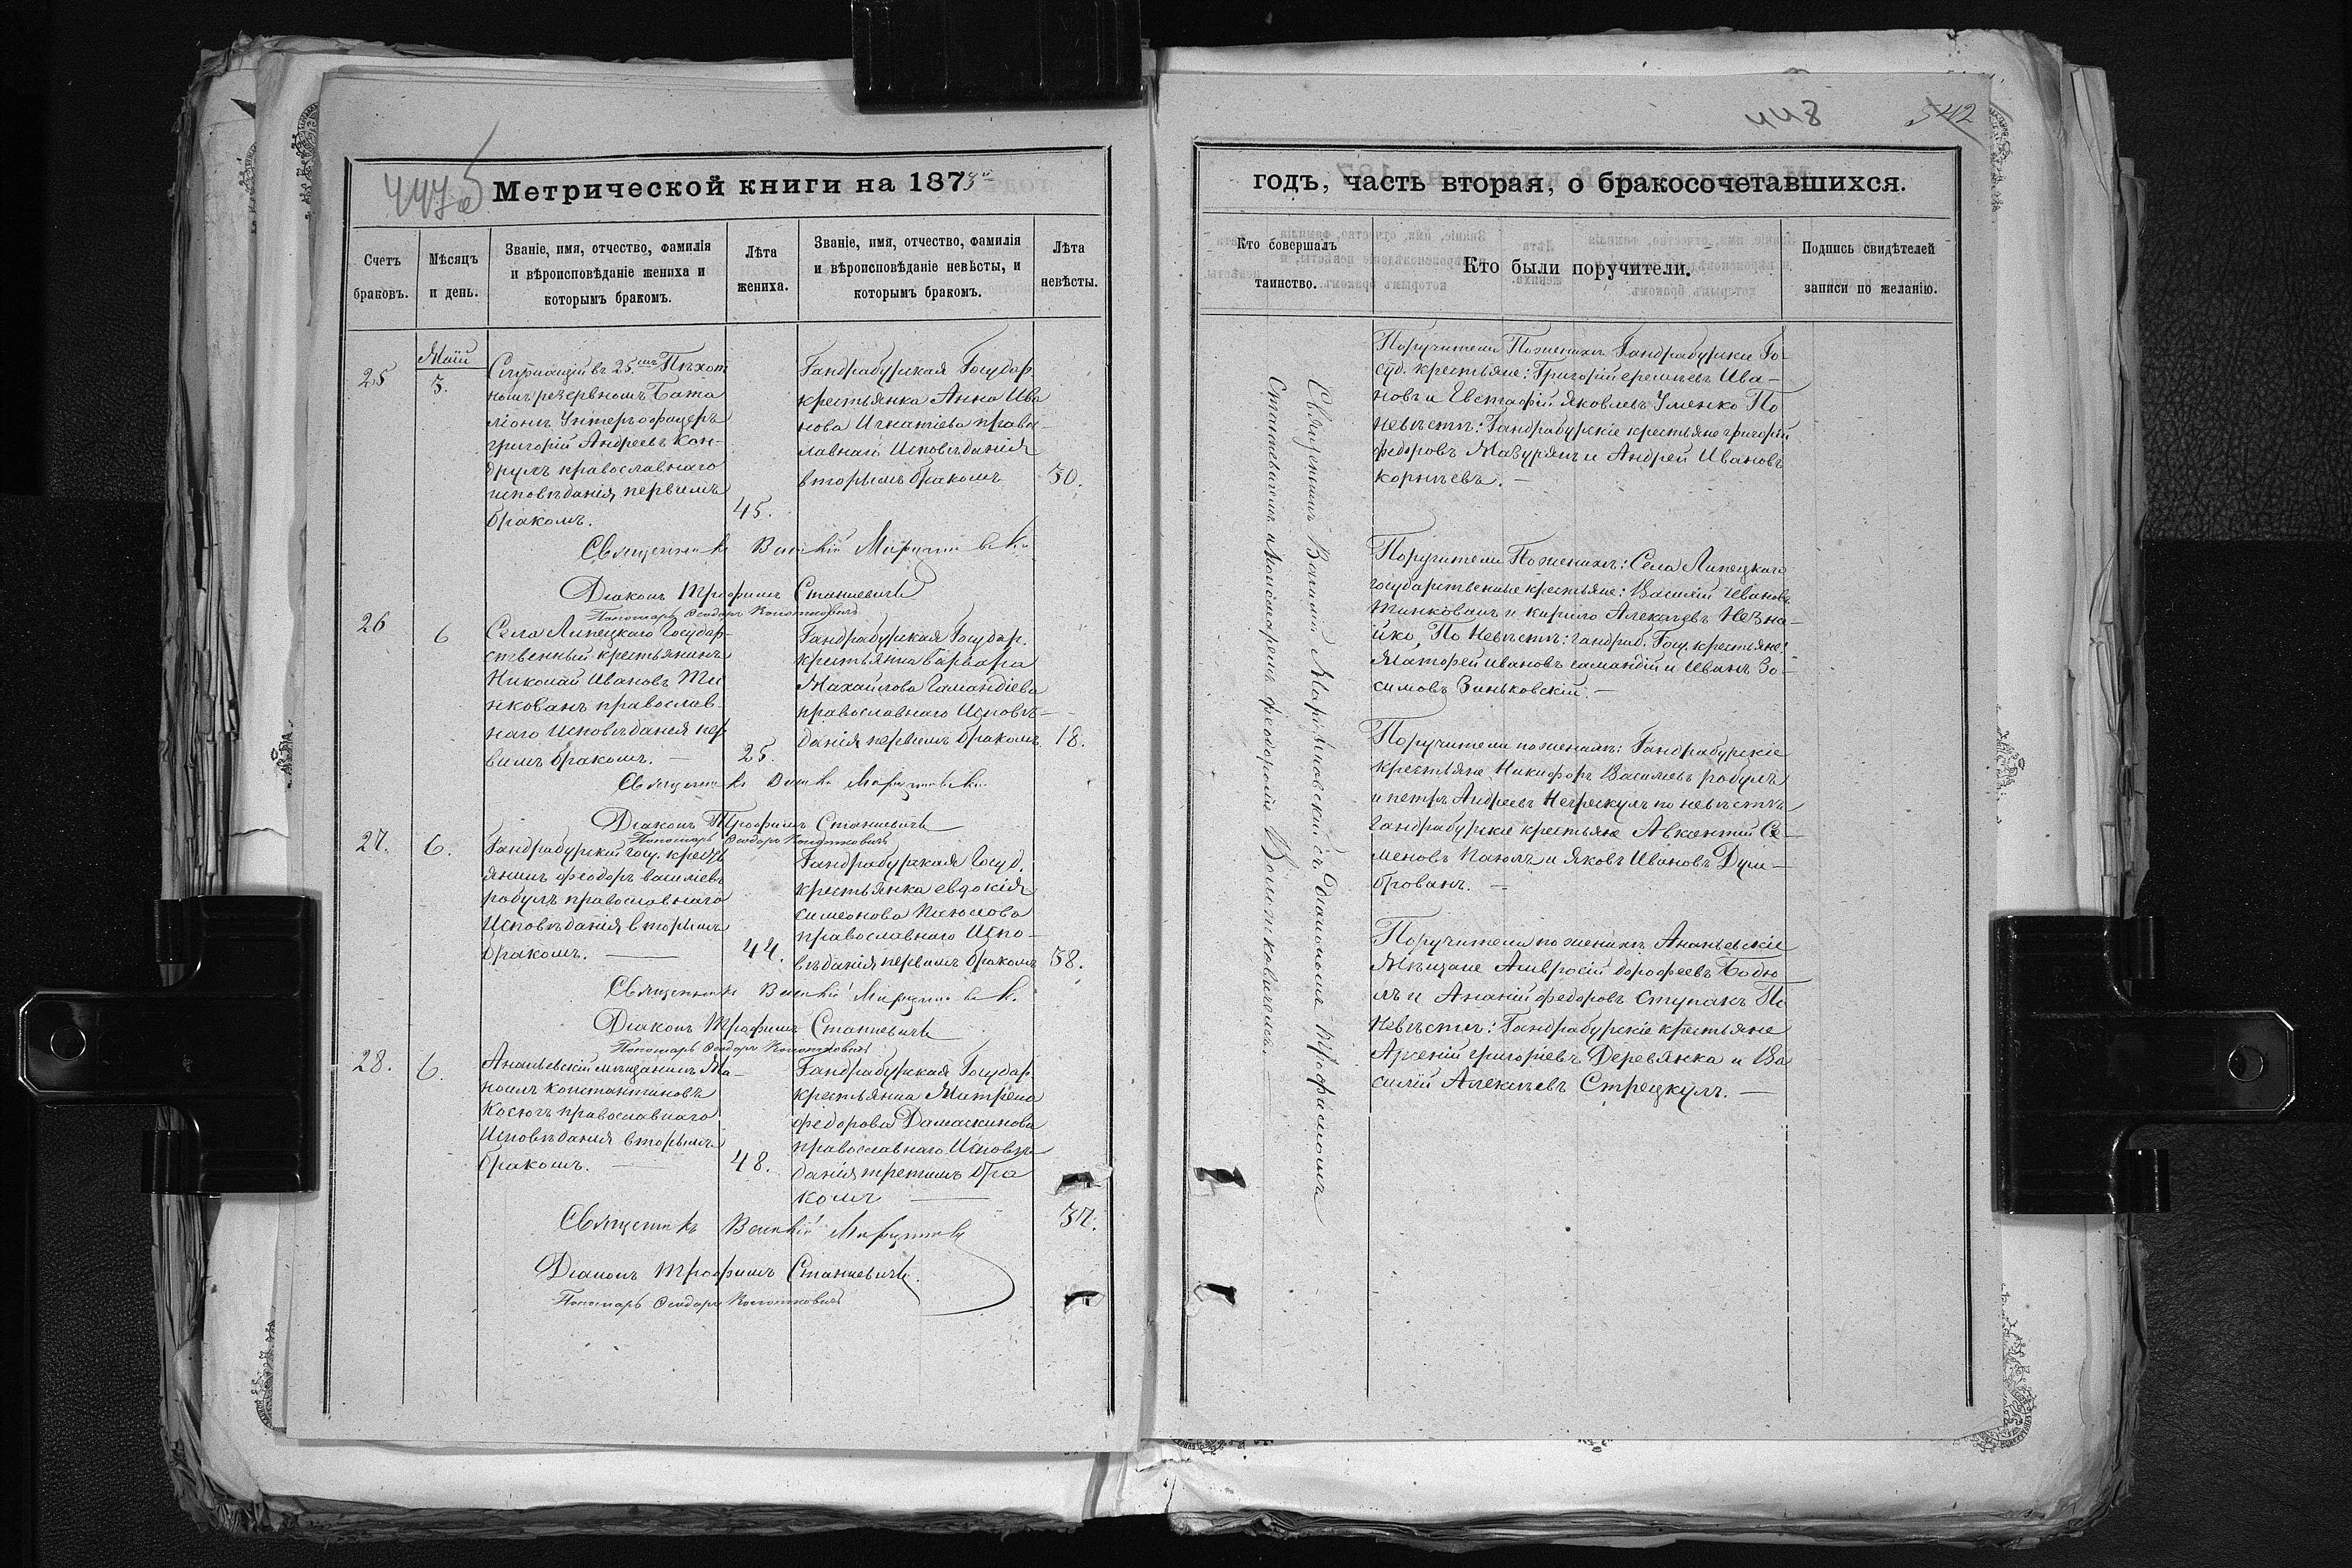 447об
Метрической книги на 1873й
Счетъ браковъ.
Мѣсяцъ и день.
Званіе, имя, отчество, фамилія и вѣроисповѣданіе жениха и которымъ бракомъ.
Лѣта жениха.
Званіе, имя, отчество, фамилія и вѣроисповѣданіе невѣсты, и которымъ бракомъ.
Лѣта невѣсты.
25
Маій
3.
Служащій въ 25.мъ Пѣхот
номъ резервномъ Бата
ліонѣ Унтерофицеръ
григорій Андреевъ Кон-
друлъ православнаго
исповѣданія первымъ
бракомъ.
45.
Гандрабурская Государ.
крестьянка Анна Ива
нова Игнатіева право-
славнаго Исповѣданія
вторымъ бракомъ
30.
Священникъ Василій
Діаконъ Трофимъ Станиевичъ
Пономарь Феодоръ
26
6
Села Липецкаго Государ-
ственный крестьянинъ
Николай Ивановъ Ти
нкованъ православ-
наго Исповѣданія пер
вимъ бракомъ. —
25.
Гандрабурская Государ.
крестьянка варвара
Михайлова Гамандіева
православнаго Исповѣ-
данія первымъ бракомъ
18.
Священникъ
Діаконъ Трофимъ Станиевичъ
Пономарь Феодоръ
27.
6.
Гандрабурскій госу. кресть
янинъ феодоръ василіевъ
робулъ православнаго
Исповѣданія вторымъ
бракомъ. —
44.
Гандрабурская Госуд.
крестьянка евдокія
симеонова Паюлова
православнаго Испо-
вѣданія первымъ бракомъ
38.
Священникъ Василій
Діаконъ Трофимъ Станиевичъ
Пономарь Феодоръ
28.
6.
Ананьевскій мѣщанинъ Ма-
ноилъ константиновъ
Косюгъ православнаго
Исповѣданія вторымъ
бракомъ. —
48.
Гандрабурская Государ.
крестьянка Матрена
федорова Дамаскинова
православнаго Исповѣ
данія третимъ бра
комъ —
37.
Священникъ Василій
Діаконъ Трофимъ Станиевичъ.
Пономарь Феодоръ
448
542
годъ, часть вторая, о бракосочетавшихся.
Кто совершалъ таинство.
Кто были поручители.
Подпись свидѣтелей записи по желанію.
Священникъ Василій Мартиновскій съ діакономъ Трофимомъ
Станиевичемъ и Пономаремъ феодоромъ
Поручители По женихѣ Гандрабурски Го-
суд. крестьяне: Григорій еремѣевъ Ива-
новъ и Евстафій Яковлевъ Уменко По
Невѣстѣ: Гандрабурскіе крестьяне григорій
федоровъ Мазурянъ и Андрей Ивановъ
корнѣевъ. —
Поручители По женихѣ: Села Липецкаго
государственные крестьяне: Василій Ивановъ
Тинкованъ и кирило Алексѣевъ Незна-
йко, По Невѣстѣ: гандраб. Госу. крестьяне:
Матфей ивановъ гамандій и Иванъ Зо-
симовъ Зиньковскій. —
Поручители по женихѣ: Гандрабурскіе
крестьяне Никифоръ Василіевъ робулъ
и петръ Андреевъ Негрескулъ по невѣстѣ
Гандрабурскіе крестьяне Авксентій Се-
меновъ Паюлъ и Яковъ Ивановъ Дум-
брованъ. —
Поручители по женихѣ Ананьевскіе
Мѣщане Амвросій дорофеевъ Бодю
лъ и Ананій федоровъ Ступакъ По
Невѣстѣ: Гандрабурскіе крестьяне
Арсеній григоріевъ Деревянка и Ва
силій Алексѣевъ Стрецкулъ. —